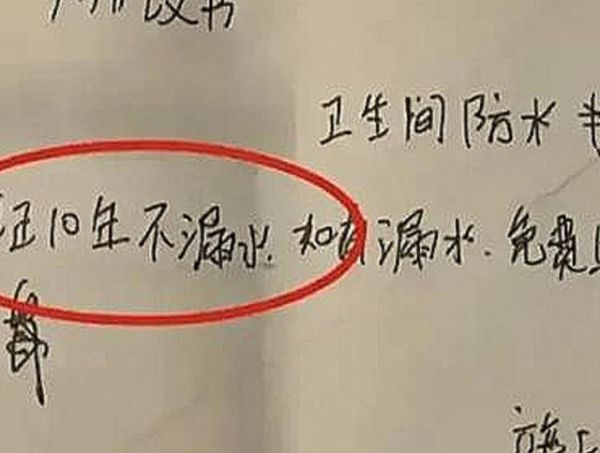 议书
卫生间防水
证10年不漏水.如有漏水.免费
施工